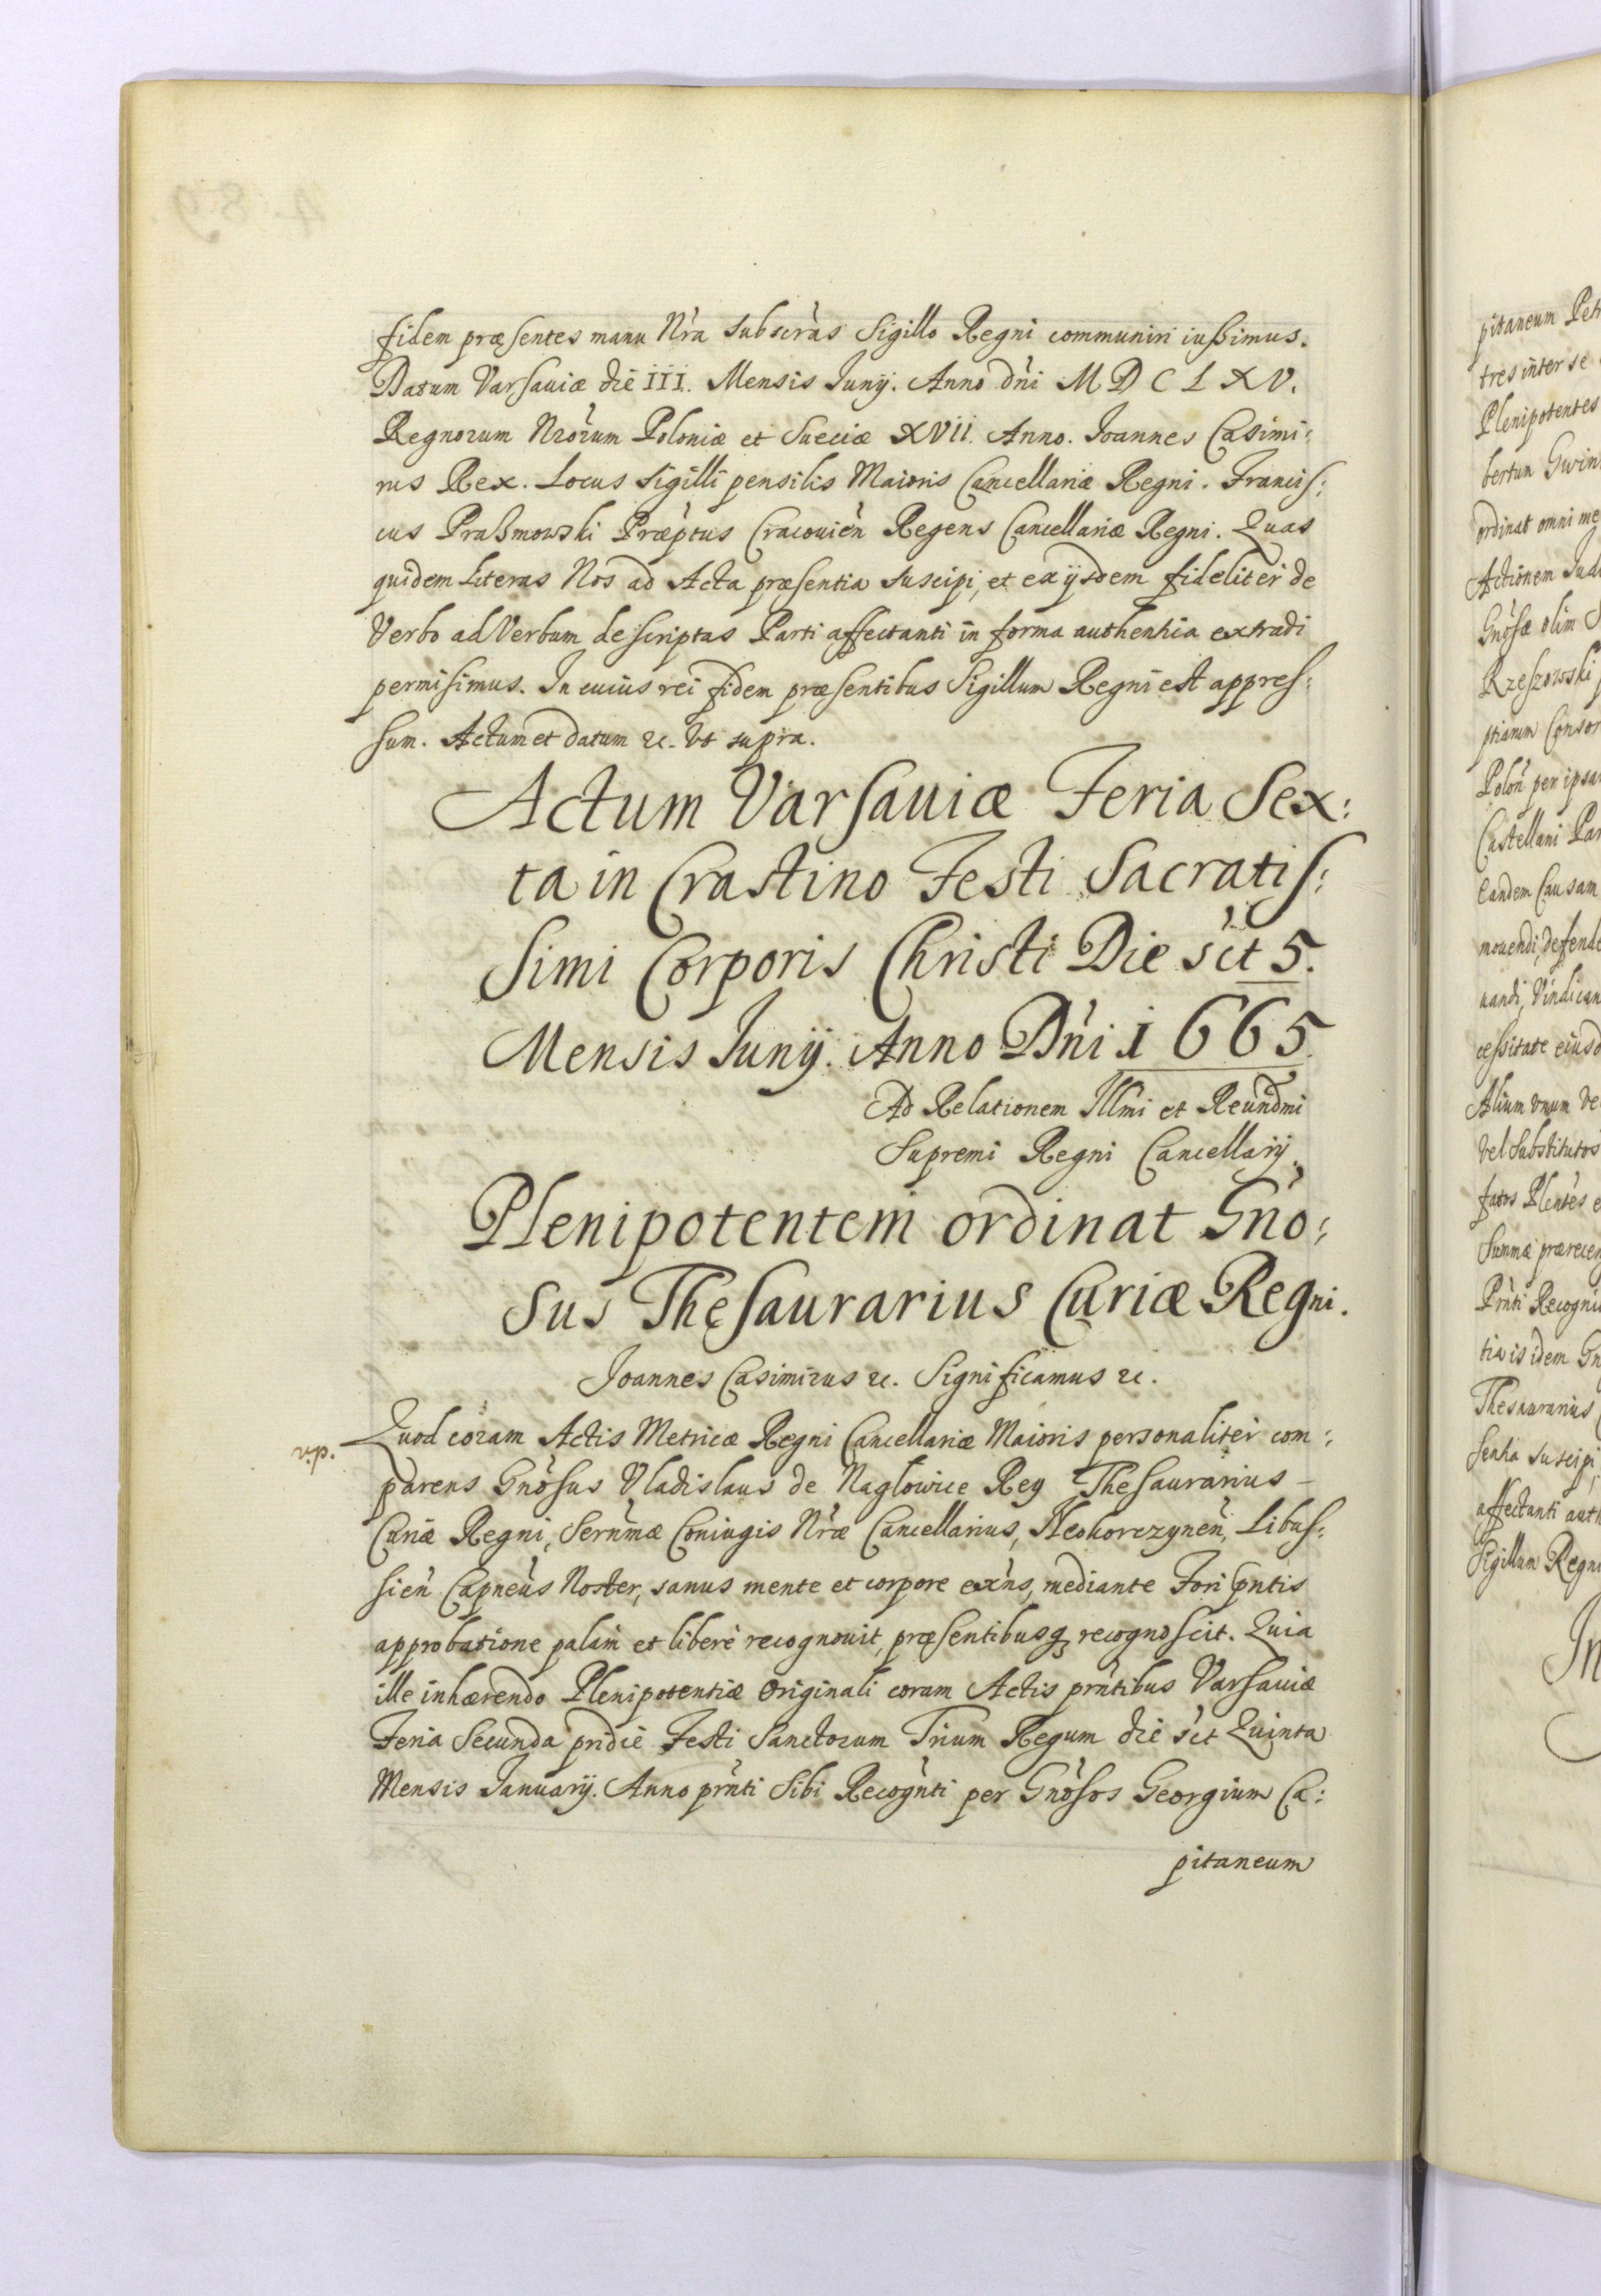 fidem præsentes manu Nr̃a subscr̃as Sigillo Regni communiri iussimus.
Datum Varsaviæ die III. Mensis Junij. Anno dñi M D C L X V.
Regnorum Nrõrum Poloniæ et Sueciæ XVII. Anno. Joannes Casimi:
rus Rex. Locus Sigilli pensilis Maioris Cancellariæ Regni. Francis:
cus Praßmowski Præp̃tus Cracouieñ Regens Cancellariæ Regni. Quas
quidem Literas Nos ad Acta præsentia suscipi, et ex ijsdem fideliter de
Verbo ad Verbum descriptas Parti affectanti in forma authentica extradi
permisimus. In cuius rei fidem præsentibus Sigillum Regni est appres:
sum. Actum et datum &c. vt supra.
Actum Varsauiæ Feria Sex:
ta in Crastino Festi Sacratis:
simi Corporis Christi Die sc̃t 5.
Mensis Junij. Anno Dñi 1665.
Ad Relationem Illm̃i et Reuñdmi
Supremi Regni Cancellarij.
Plenipotentem ordinat Gño:
sus Thesaurarius Curiæ Regni.
Joannes Casimirus &c. Significamus &c.
Quod coram Actis Metricæ Regni Cancellariæ Maioris personaliter com:
parens Gnõsus Vladislaus de Naglowice Rey Thesaurarius
Curiæ Regni, Serñmæ Coniugis Nr̃æ Cancellarius, Neokorczyneñ, Libus:
sieñ Capneũs Noster, sanus mente et corpore ex̃ns, mediante Fori p̃ntis
approbatione palam et liberè recognouit, præsentibusq; recognoscit. Quia
ille inhærendo Plenipotentiæ Originali coram Actis pr̃ntibus Varsauiæ
Feria Secunda pridie Festi Sanctorum Trium Regum die sc̃t Quinta
Mensis Januarij. Anno pr̃nti Sibi Recog̃nti per Gnõsos Georgium Ca:
pitaneum
pitaneum
tres inter se
Plenipotentes
ordinat omni
Actionem
Gnõsæ olim
Rzeszowski
Poloñ per
Castellani
Eandem Causam
Alium vnum
vel Substitutos
Pr̃nti
tia is idem
Thesaurarius
suscipi
affectanti
Sigillum
In